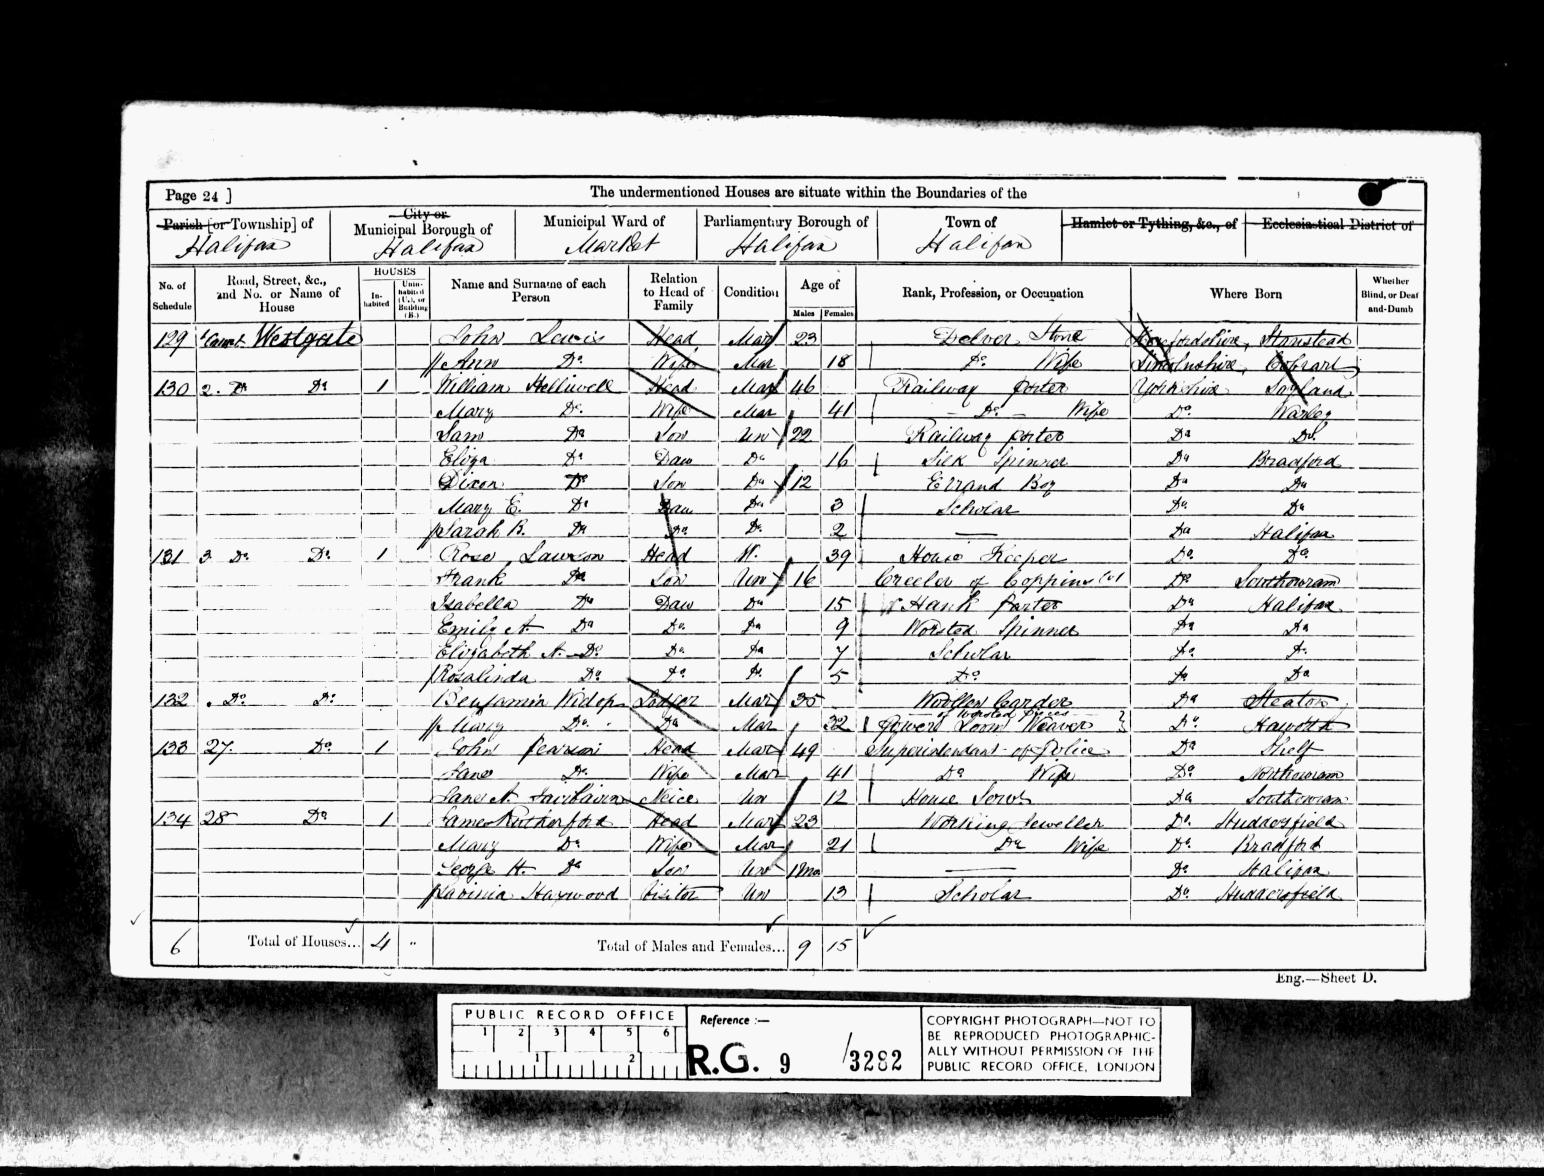 Page 24 ]
The undermentioned Houses are situate within the Boundaries of the
Parish [or Township] of
City or Municipal Borough of
Municipal Ward of
Parliamentary Borough of
Town of
Hamlet or Tything, &c., of
Ecclesiastical District of
Halifax Halifax Market Halifax Halifax
No. of Schedule
Road, Street, &c., and No. or Name of House
HOUSES
In-habited
Unin-habited (U.), or Building (B.)
Name and Surname of each Person
Relation to Head of Family
Condition
Age of
Males Females
Rank, Profession, or Occupation
Where Born
Whether Blind, or Deaf and-Dumb
129 Westgate John Lewis Head Mar 23 Delver Stone Stanstead
Ann Do Wife Mar 18 Do Wife
130 2. Do Do 1 William Helliwell Head Mar 46 Railway Porter Yorkshire Soyland
Mary Do Wife Mar 41 Do Wife Do Warley
Sam Do Son Un 22 Railway Porter Do Do
Eliza Do Daw Do 16 Silk Spinner Do Bradford
Dixon Do Son Do 12 Errand Boy Do Do
Mary E. Do Daw Do 3 Scholar Do Do
Sarah B. Do Do Do 2 — Do Halifax
131 3 Do Do 1 Rose Lawson Head W. 39 House Keeper Do Do
Frank Do Son Un 16 Creeler of Coppins Do Southowram
Isabella Do Daw Do 15 Hank Porter Do Halifax
Emily A. Do Do Do 9 Worsted Spinner Do Do
Elizabeth A. Do Do Do 7 Scholar Do Do
Rosalinda Do Do Do 5 Do Do Do
132 Do Do Benjamin Widop Lodger Mar 35 Woollen Carder Do Heaton
Mary Do Do Mar 32 Power Loom Weaver Do Haworth
of Worsted Pieces
133 27 Do 1 John Pearson Head Mar 49 Superintendant of Police Do Shelf
Jane Do Wife Mar 41 Do Wife Do Northowram
Jane A. Fairbairn Neice Un 12 House Servt Do Southowram
134 28 Do 1 James Rutherford Head Mar 23 Working Jeweller Do Huddersfield
Mary Do Wife Mar 21 Do Wife Do Bradford
George H. Do Son Un 1 Mo — Do Halifax
Lavinia Haywood Visitor Un 13 Scholar Do Huddersfield
6 Total of Houses... 4 „ Total of Males and Females... 9 15
Eng.—Sheet D.
PUBLIC RECORD OFFICE
1 2 3 4 5 6
1 2
Reference :—
R.G. 9 /3282
COPYRIGHT PHOTOGRAPH—NOT TO
BE REPRODUCED PHOTOGRAPHIC-
ALLY WITHOUT PERMISSION OF THE
PUBLIC RECORD OFFICE, LONDON